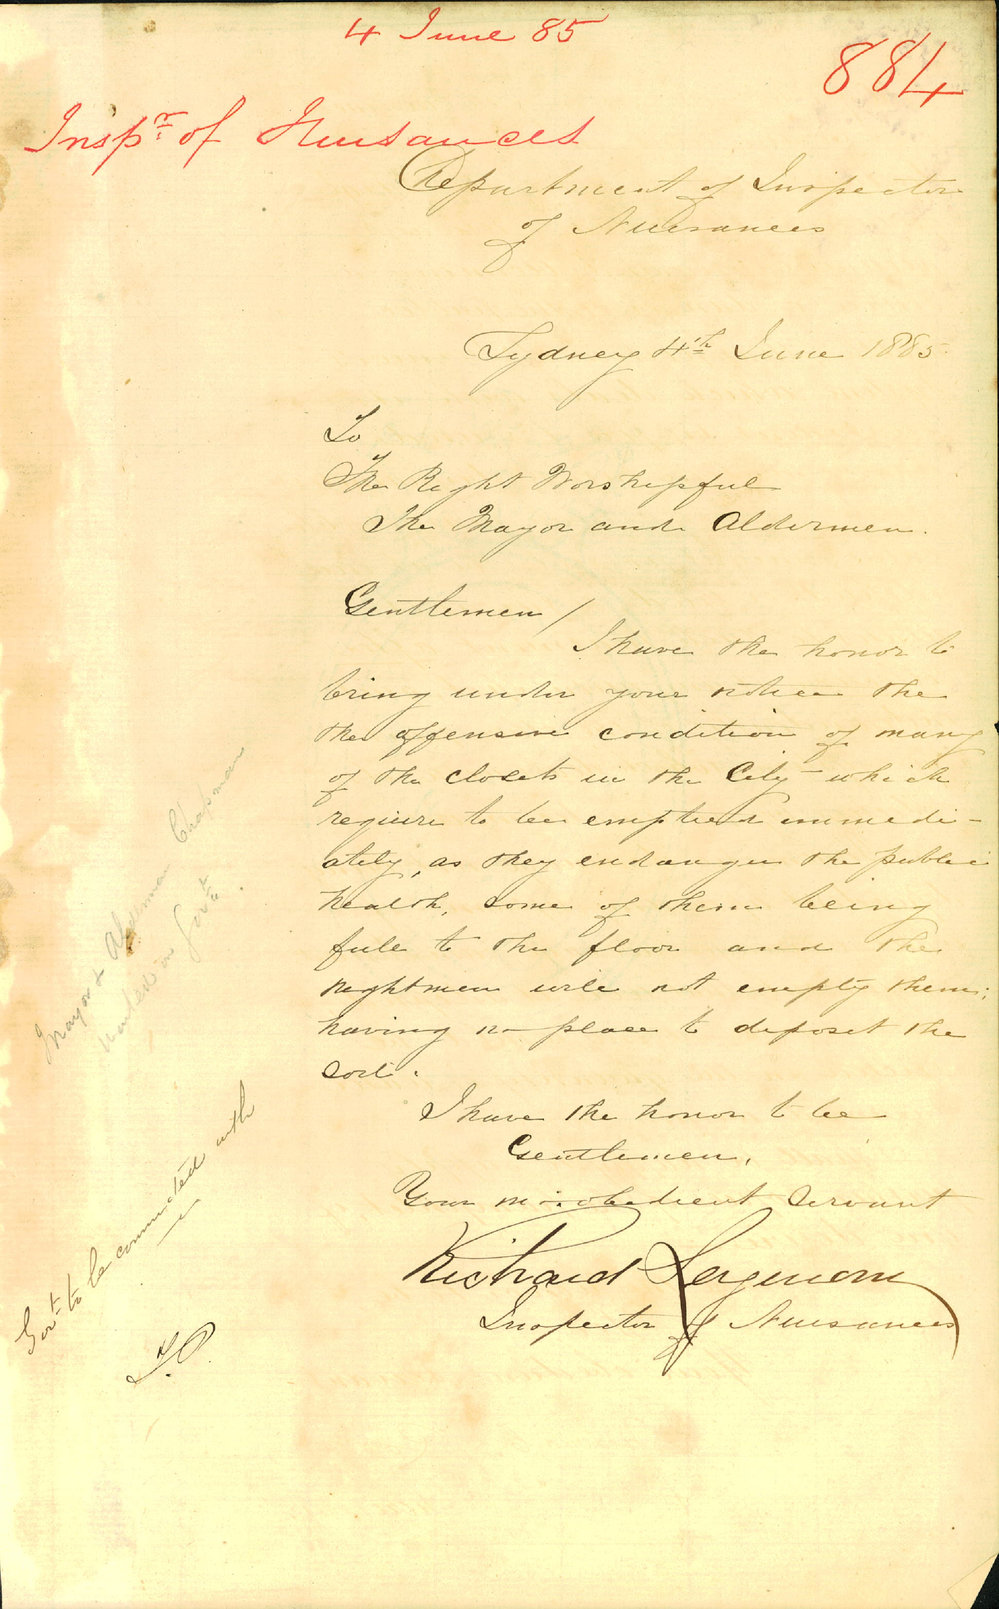 4 June 85
884
Inspr. of Nuisances
Department of Inspector
of Nuisances
Sydney 4th June 1885.
To
The Right Worshipful
The Mayor and Aldermen.
Gentlemen /
I have the honor to
bring under your notice the
the offensive condition of many
of the closets in the City which
require to be emptied immedi-
ately, as they endanger the public
health, some of them being
full to the floor and the
nightmen will not empty them;
having no place to deposit the
soil.
I have the honor to be
Gentlemen,
Your mo: obedient Servant
Richard Seymour
Inspector of Nuisances
Mayor & Alderman Chapman
waited on Govt.
Govt. to be communicated with